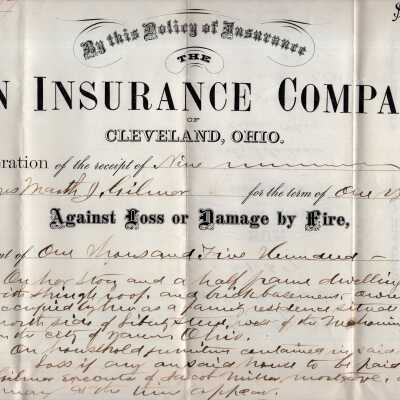 By this Policy of Insurance
THE
N INSURANCE COMPA
OF
CLEVELAND, OHIO.
eration of the receipt of Nine
Marth J. Gilmor for the term of One
Against Loss or Damage by Fire,
t of One Thousand Five Hundred
On her Story and a half frame dwelling
with shingle roof, and brick basement, owned
occupied by her as a family residence situate
north side of Liberty Street, west of the
in the city of Ohio.
On household furniture contained in said
Loss if any on said house to be paid
Gilmor executor of Jacob Miller mortgagee, as
may at the time appear.